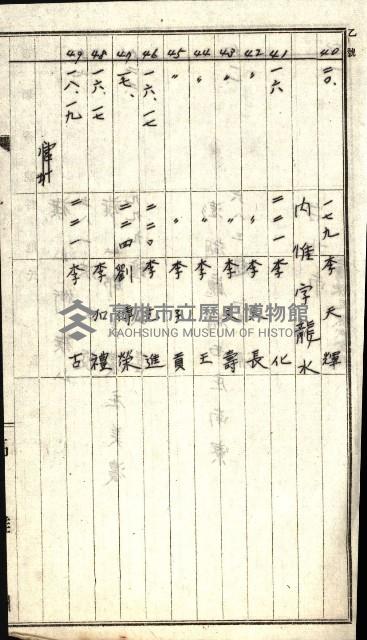 乙號
40 二〇、 一七九 李天輝
內惟字龍水
41 一六 二二一 李化
42 〃 〃 李長
43 〃 〃 李壽
44 〃 〃 李王
45 〃 〃 李貢
46 一六、一七 二二〇 李進
47 一七、 二二四 劉榮
48 一六、一七 二二 李加禮
49 一八、一九 二二一 李古
高雄市立歷史博物館
KAOHSIUNG MUSEUM OF HISTORY